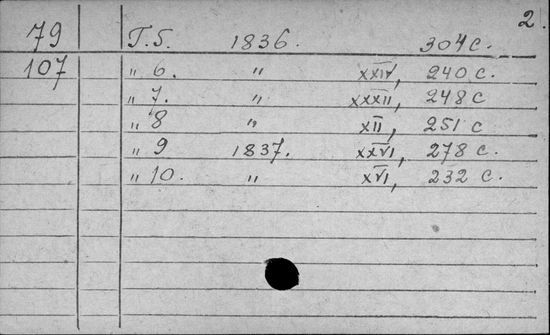 2.
79 Т.5. 1836. 304 с.
107 " 6. " XXIV, 240 с.
" 7. " XXXII, 248 с
" 8 " XII, 251 с
" 9 1837. XXVI, 278 с.
" 10. " XVI, 232 с.